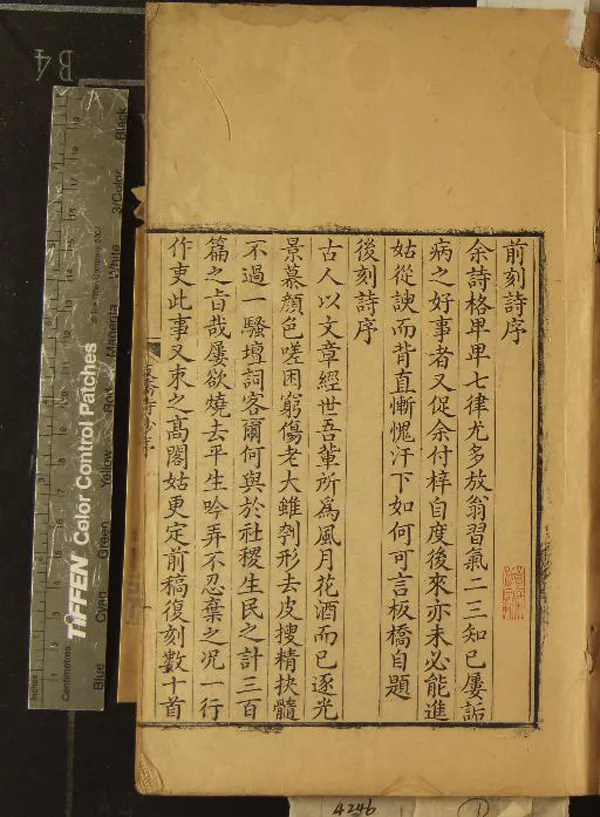 前刻詩序
余詩格卑卑七律尤多放翁習氣二三知己屢詬
病之好事者又促余付梓自度後來亦未必能進
姑從諛而背直慚愧汗下如何可言板橋自題
後刻詩序
古人以文章經世吾輩所爲風月花酒而已逐光
景慕顏色嗟困窮傷老大雖刳形去皮搜精抉髓
不過一騷壇詞客爾何與於社稷生民之計三百
篇之旨哉屢欲燒去平生吟弄不忍棄之况一行
作吏此事又束之高閣姑更定前稿復刻數十首
板橋詩鈔序
B4
Inches
Centimetres
TIFFEN Color Control Patches
© The Tiffen Company, 2007
Blue
Cyan
Green
Yellow
Red
Magenta
White
3/Color
Black
4246
1